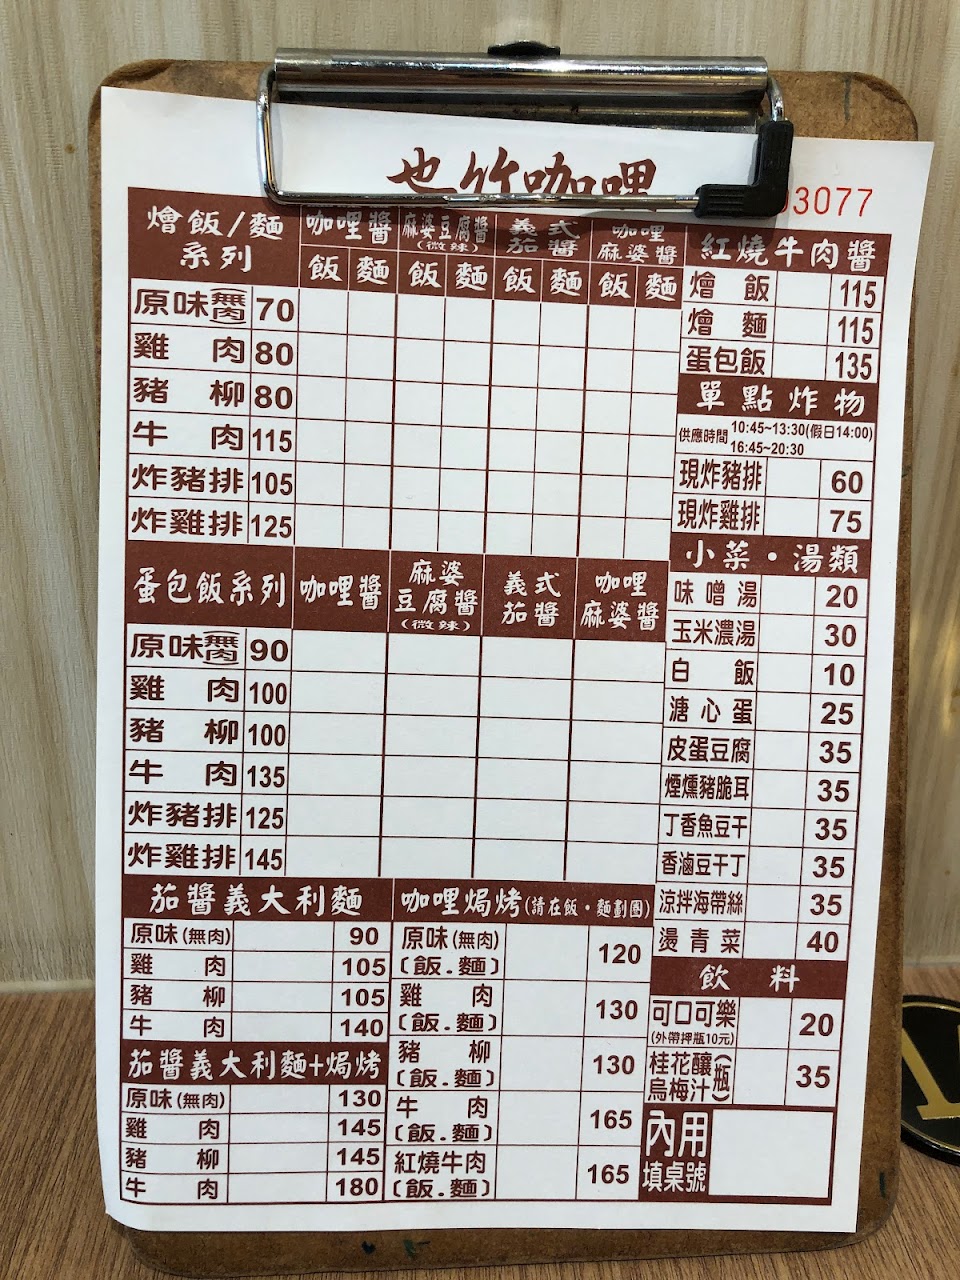 也竹咖哩
03077
燴飯/麵
系列
咖哩醬
麻婆豆腐醬
(微辣)
義式
茄醬
咖哩
麻婆醬
飯 麵 飯 麵 飯 麵 飯 麵
原味(無肉) 70
雞肉 80
豬柳 80
牛肉 115
炸豬排 105
炸雞排 125
蛋包飯系列
咖哩醬
麻婆
豆腐醬
(微辣)
義式
茄醬
咖哩
麻婆醬
原味(無肉) 90
雞肉 100
豬柳 100
牛肉 135
炸豬排 125
炸雞排 145
茄醬義大利麵
原味(無肉) 90
雞肉 105
豬柳 105
牛肉 140
茄醬義大利麵+焗烤
原味(無肉) 130
雞肉 145
豬柳 145
牛肉 180
咖哩焗烤(請在飯・麵劃圈)
原味(無肉)
(飯.麵) 120
雞肉
(飯.麵) 130
豬柳
(飯.麵) 130
牛肉
(飯.麵) 165
紅燒牛肉
(飯.麵) 165
紅燒牛肉醬
燴飯 115
燴麵 115
蛋包飯 135
單點炸物
供應時間 10:45~13:30(假日14:00)
16:45~20:30
現炸豬排 60
現炸雞排 75
小菜・湯類
味噌湯 20
玉米濃湯 30
白飯 10
溏心蛋 25
皮蛋豆腐 35
煙燻豬脆耳 35
丁香魚豆干 35
香滷豆干丁 35
涼拌海帶絲 35
燙青菜 40
飲料
可口可樂 20
(外帶押瓶10元)
桂花釀
烏梅汁(瓶) 35
內用
填桌號